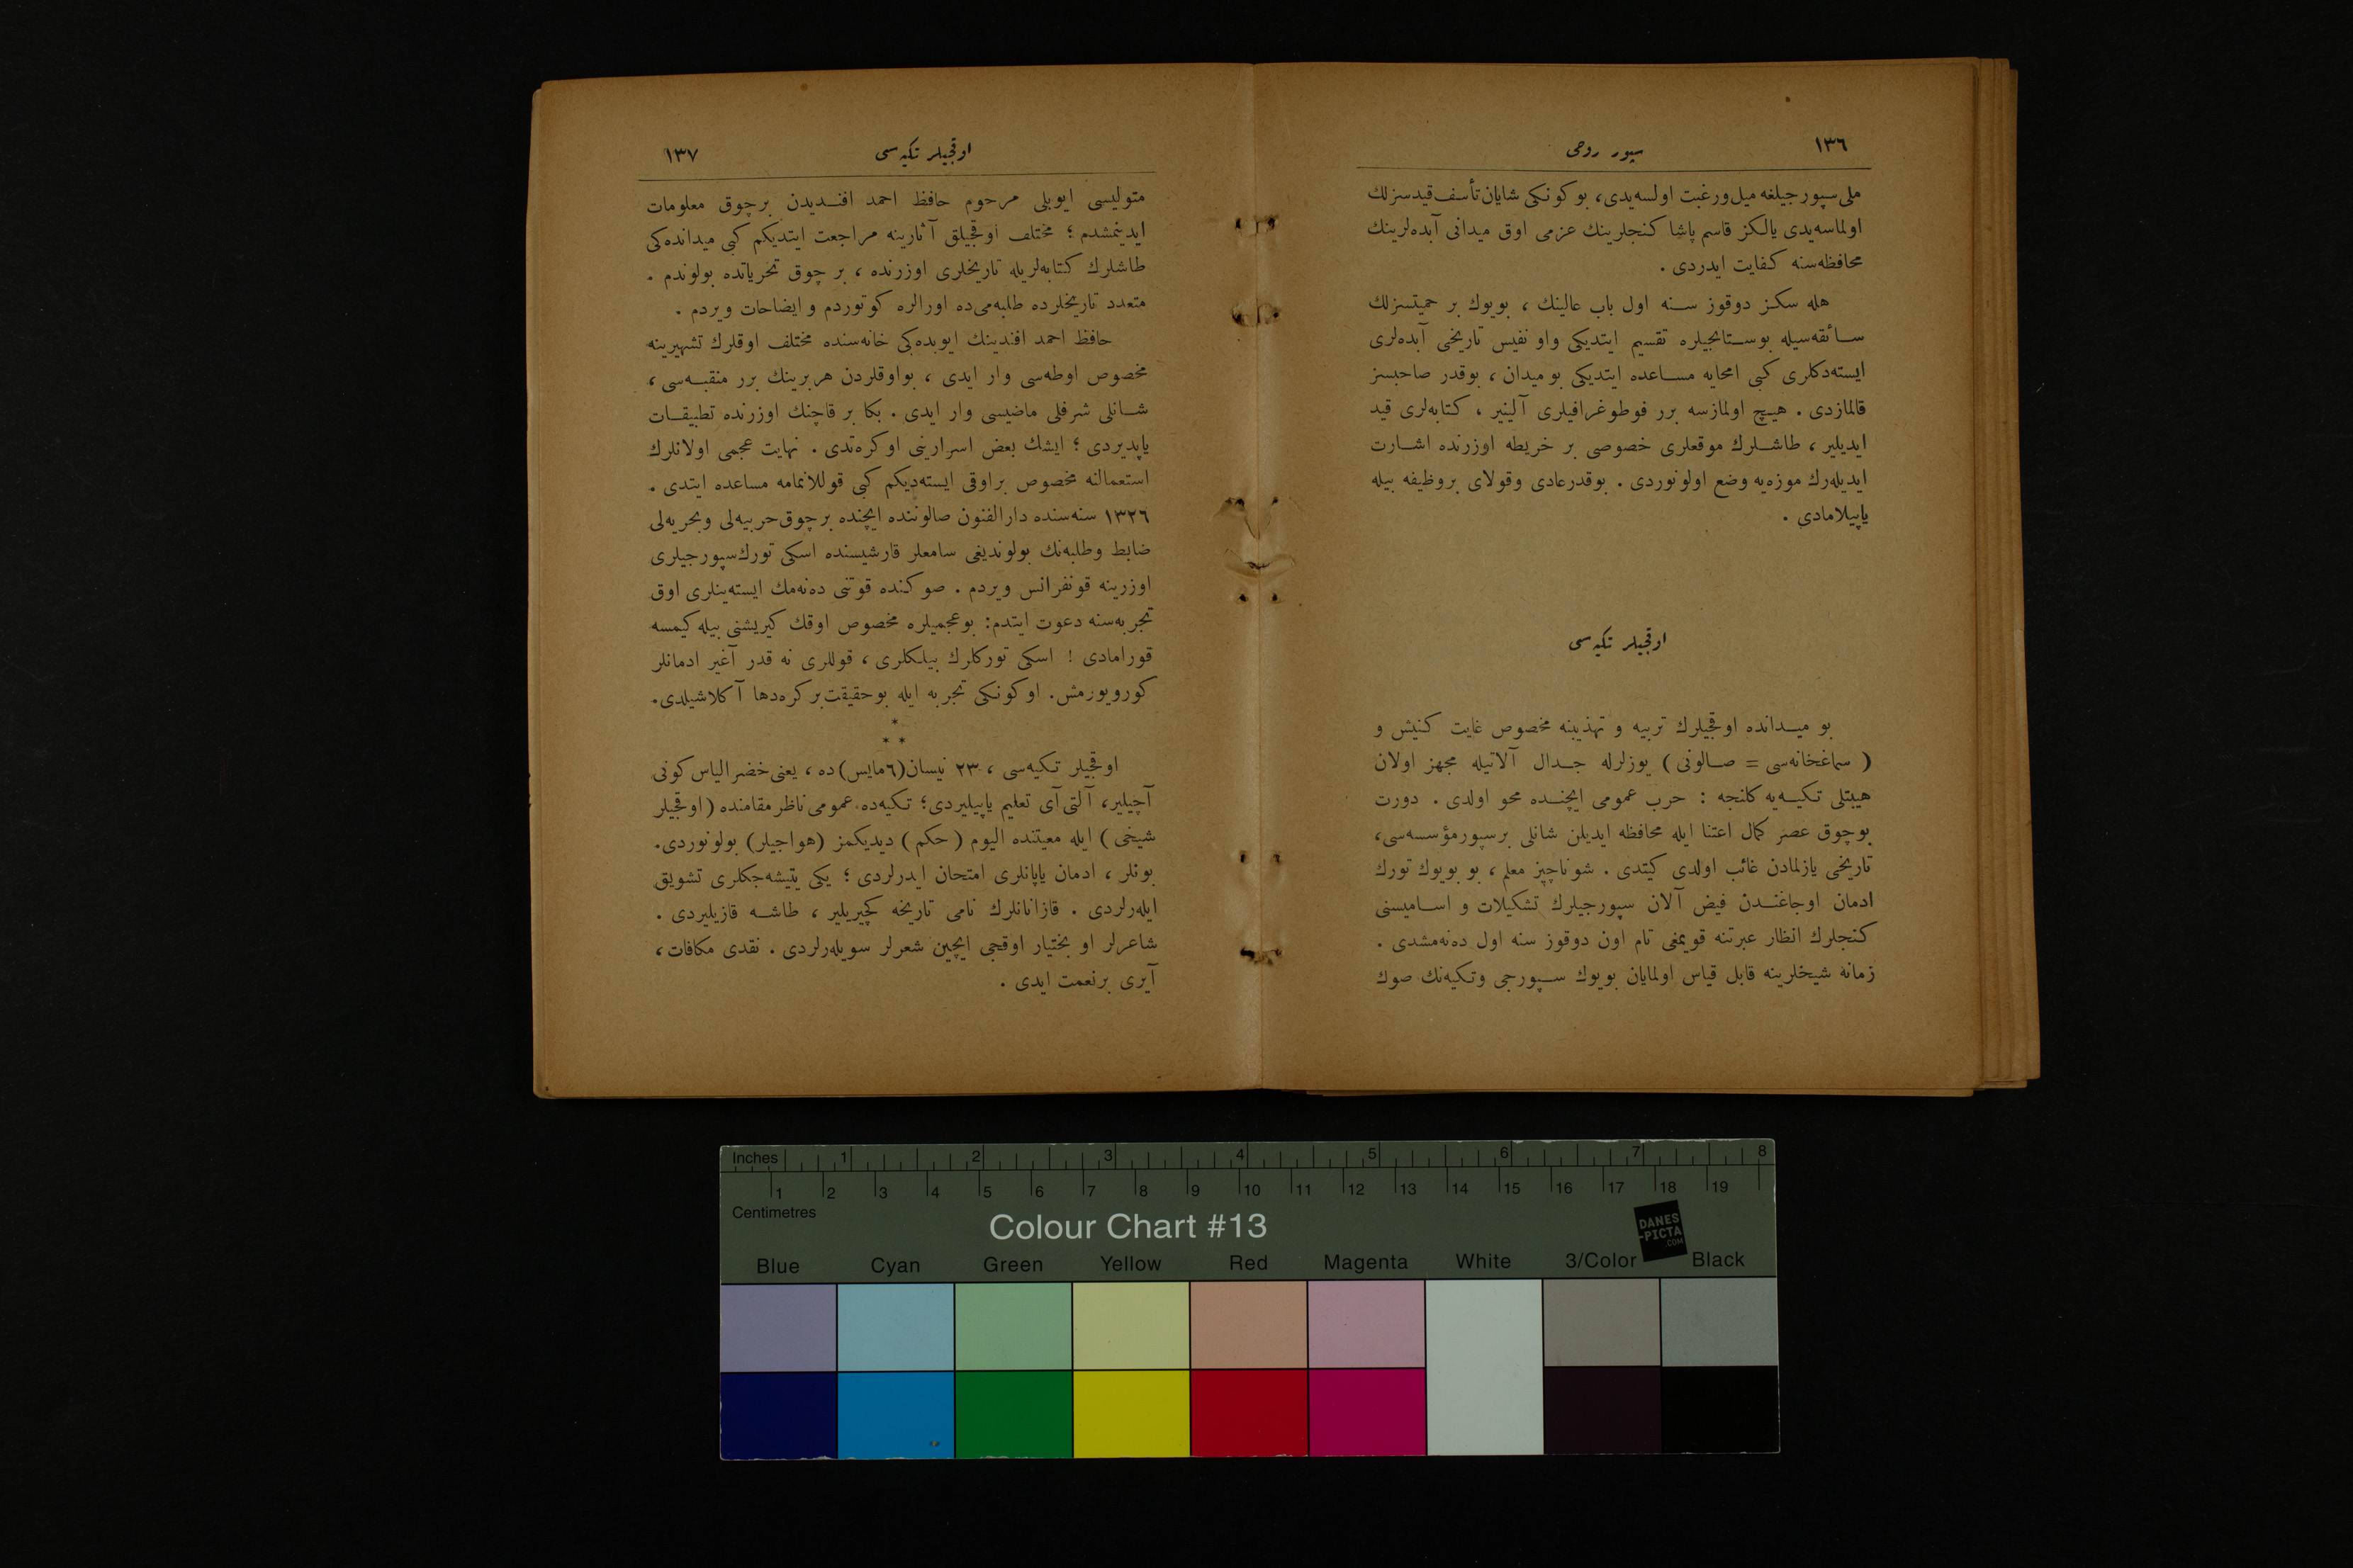 ١٣٦
سپور روحی
ملی سپورجیلغه میل ورغبت اولسه‌یدی، بوكونكی شایان تأسف قیدسزلك
اولماسه‌یدی یالكز قاسم پاشا كنجلرینك عزمی اوق میدانی آبده‌لرینك
محافظه‌سنه كفایت ایدردی .
هله سكز دوقوز سنه اول باب عالینك ، بویوك بر حمیتسزلك
سائقه‌سیله بوستانجیلره تقسیم ایتدیكی واو نفیس تاریخی آبده‌لری
ایسته‌دكلری كبی امحایه مساعده ایتدیكی بو میدان ، بوقدر صاحبسز
قالمازدی . هیچ اولمازسه برر فوطوغرافیلری آلینیر ، كتابه‌لری قید
ایدیلیر ، طاشلرك موقعلری خصوصی بر خریطه اوزرنده اشارت
ایدیله‌رك موزه‌یه وضع اولونوردی . بوقدرعادی وقولای بروظیفه بیله
یاپیلامادی .
اوقجیلر تكیه‌سی
بو میدانده اوقجیلرك تربیه و تهذیبنه مخصوص غایت كنیش و
( سماغخانه‌سی = صالونی ) یوزلرله جدال آلاتیله مجهز اولان
هیبتلی تكیه‌یه كلنجه : حرب عمومی ایچنده محو اولدی . دورت
بوچوق عصر كمال اعتنا ایله محافظه ایدیلن شانلی برسپورمؤسسه‌سی،
تاریخی یازلمادن غائب اولدی كیتدی . شو ناچیز معلم ، بو بویوك تورك
ادمان اوجاغندن فیض آلان سپورجیلرك تشكیلات و اسامیسنی
كنجلرك انظار عبرتنه قویمغی تام اون دوقوز سنه اول ده‌نه‌مشدی .
زمانه شیخلرینه قابل قیاس اولمایان بویوك سپورجی وتكیه‌نك صوك
اوقجیلر تكیه‌سی
١٣٧
متولیسی ایوبلی مرحوم حافظ احمد افندیدن برچوق معلومات
ایدینمشدم ؛ مختلف اوقجیلق آثارینه مراجعت ایتدیكم كبی میدانده‌كی
طاشلرك كتابه‌لریله تاریخلری اوزرنده ، بر چوق تحریاتده بولوندم .
متعدد تاریخلرده طلبه‌می‌ده اورالره كوتوردم و ایضاحات ویردم .
حافظ احمد افندینك ایوبده‌كی خانه‌سنده مختلف اوقلرك تشهیرینه
مخصوص اوطه‌سی وار ایدی ، بواوقلردن هربرینك برر منقبه‌سی ،
شانلی شرفلی ماضیسی وار ایدی . بكا بر قاچنك اوزرنده تطبیقات
یاپدیردی ؛ ایشك بعض اسرارینی اوكره‌تدی . نهایت عجمی اولانلرك
استعمالنه مخصوص براوقی ایسته‌دیكم كبی قوللانمامه مساعده ایتدی .
١٣٢٦ سنه‌سنده دارالفنون صالوننده ایچنده برچوق‌حربیه‌لی وبحریه‌لی
ضابط وطلبه‌نك بولوندیغی سامعلر قارشیسنده اسكی تورك‌سپورجیلری
اوزرینه قونفرانس ویردم . صوكنده قوتنی ده‌نه‌مك ایسته‌ینلری اوق
تجربه‌سنه دعوت ایتدم: بوعجمیلره مخصوص اوقك كیریشنی بیله كیمسه
قورامادی ! اسكی توركلرك بیلكلری ، قوللری نه قدر آغیر ادمانلر
كورویورمش. اوكونكی تجربه ایله بوحقیقت بركره‌دها آكلاشیلدی.
*
* *
اوقجیلر تكیه‌سی ، ٢٣ نیسان(٦مایس)ده ، یعنی خضرالیاس كونی
آچیلیر، آلتی آی تعلیم یاپیلیردی؛ تكیه‌ده عمومی ناظر مقامنده (اوقجیلر
شیخی) ایله معیتنده الیوم (حكم) دیدیكمز (هواجیلر) بولونوردی.
بونلر ، ادمان یاپانلری امتحان ایدرلردی ؛ یكی یتیشه‌جكلری تشویق
ایله‌رلردی . قازانانلرك نامی تاریخه كچیریلیر ، طاشه قازیلیردی .
شاعرلر او بختیار اوقجی ایچین شعرلر سویله‌رلردی . نقدی مكافات ،
آیری برنعمت ایدی .
Inches 1 2 3 4 5 6 7 8
1 2 3 4 5 6 7 8 9 10 11 12 13 14 15 16 17 18 19
Centimetres
Colour Chart #13
DANES
-PICTA
.COM
Blue Cyan Green Yellow Red Magenta White 3/Color Black